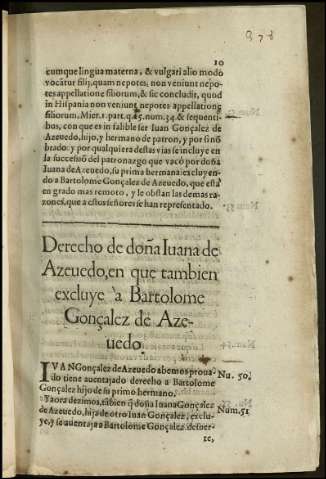 378
10
cumque lingua materna, & vulgari alio modo
vocãtur filij, quam nepotes, non veniunt nepo-
tes appellatione filiorum, & sic concludit, quod
in Hispania non veniunt nepotes appellatione
filiorum, Mier. 1. part. q. 25. num. 34. & sequenti-
bus, con que es infalible ser Iuan Gonçalez de
Azeuedo, hijo, y hermano de patron, y por sino
brado: y por qualquiera destas vias se incluye en
la succession del patronazgo que vacò por doña
Iuana de Azeuedo, su prima hermana: excluyen-
do a Bartolome Gonçalez de Azeuedo, que està
en grado mas remoto, y le obstan las demas ra-
zones, que a estos señores se han representado.
Derecho de doña Iuana de
Azeuedo, en que tambien
excluye à Bartolome
Gonçalez de Aze-
uedo.
IVAN Gonçalez de Azeuedo abemos proua- Nu. 50.
do tiene auentajado derecho a Bartolome
Gonçalez hijo de su primo hermano.
Y aora dezimos, tãbien q̃ doña Iuana Gonçalez Num. 51
de Azeuedo, hija de otro Iuan Gonçalez, exclu-
ye, y se auentaja a Bartolome Gonçalez, de suer-
te,